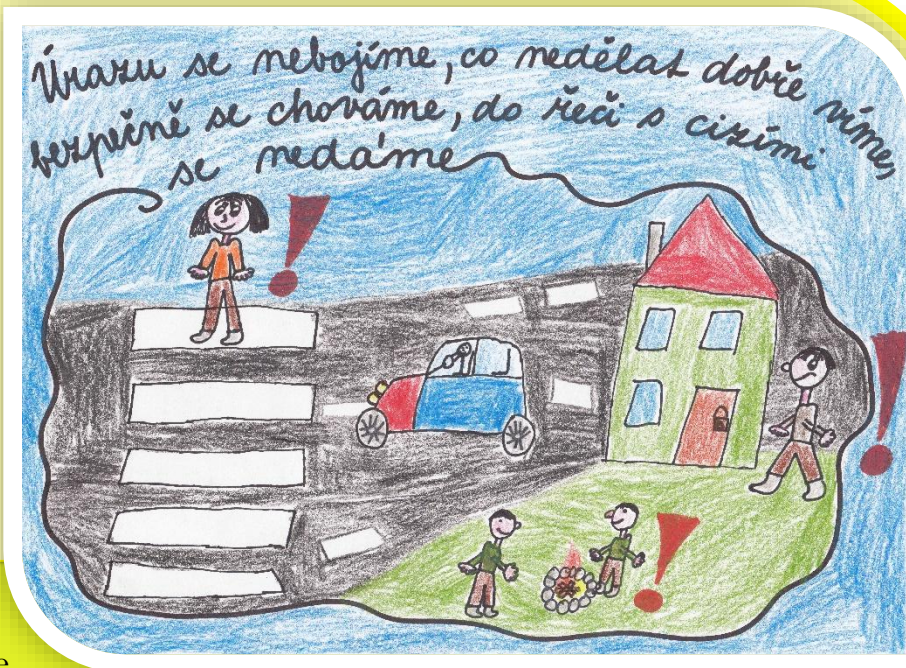 Úrazu se nebojíme, co nedělat dobře víme,
bezpečně se chováme, do řeči s cizími
se nedáme
e